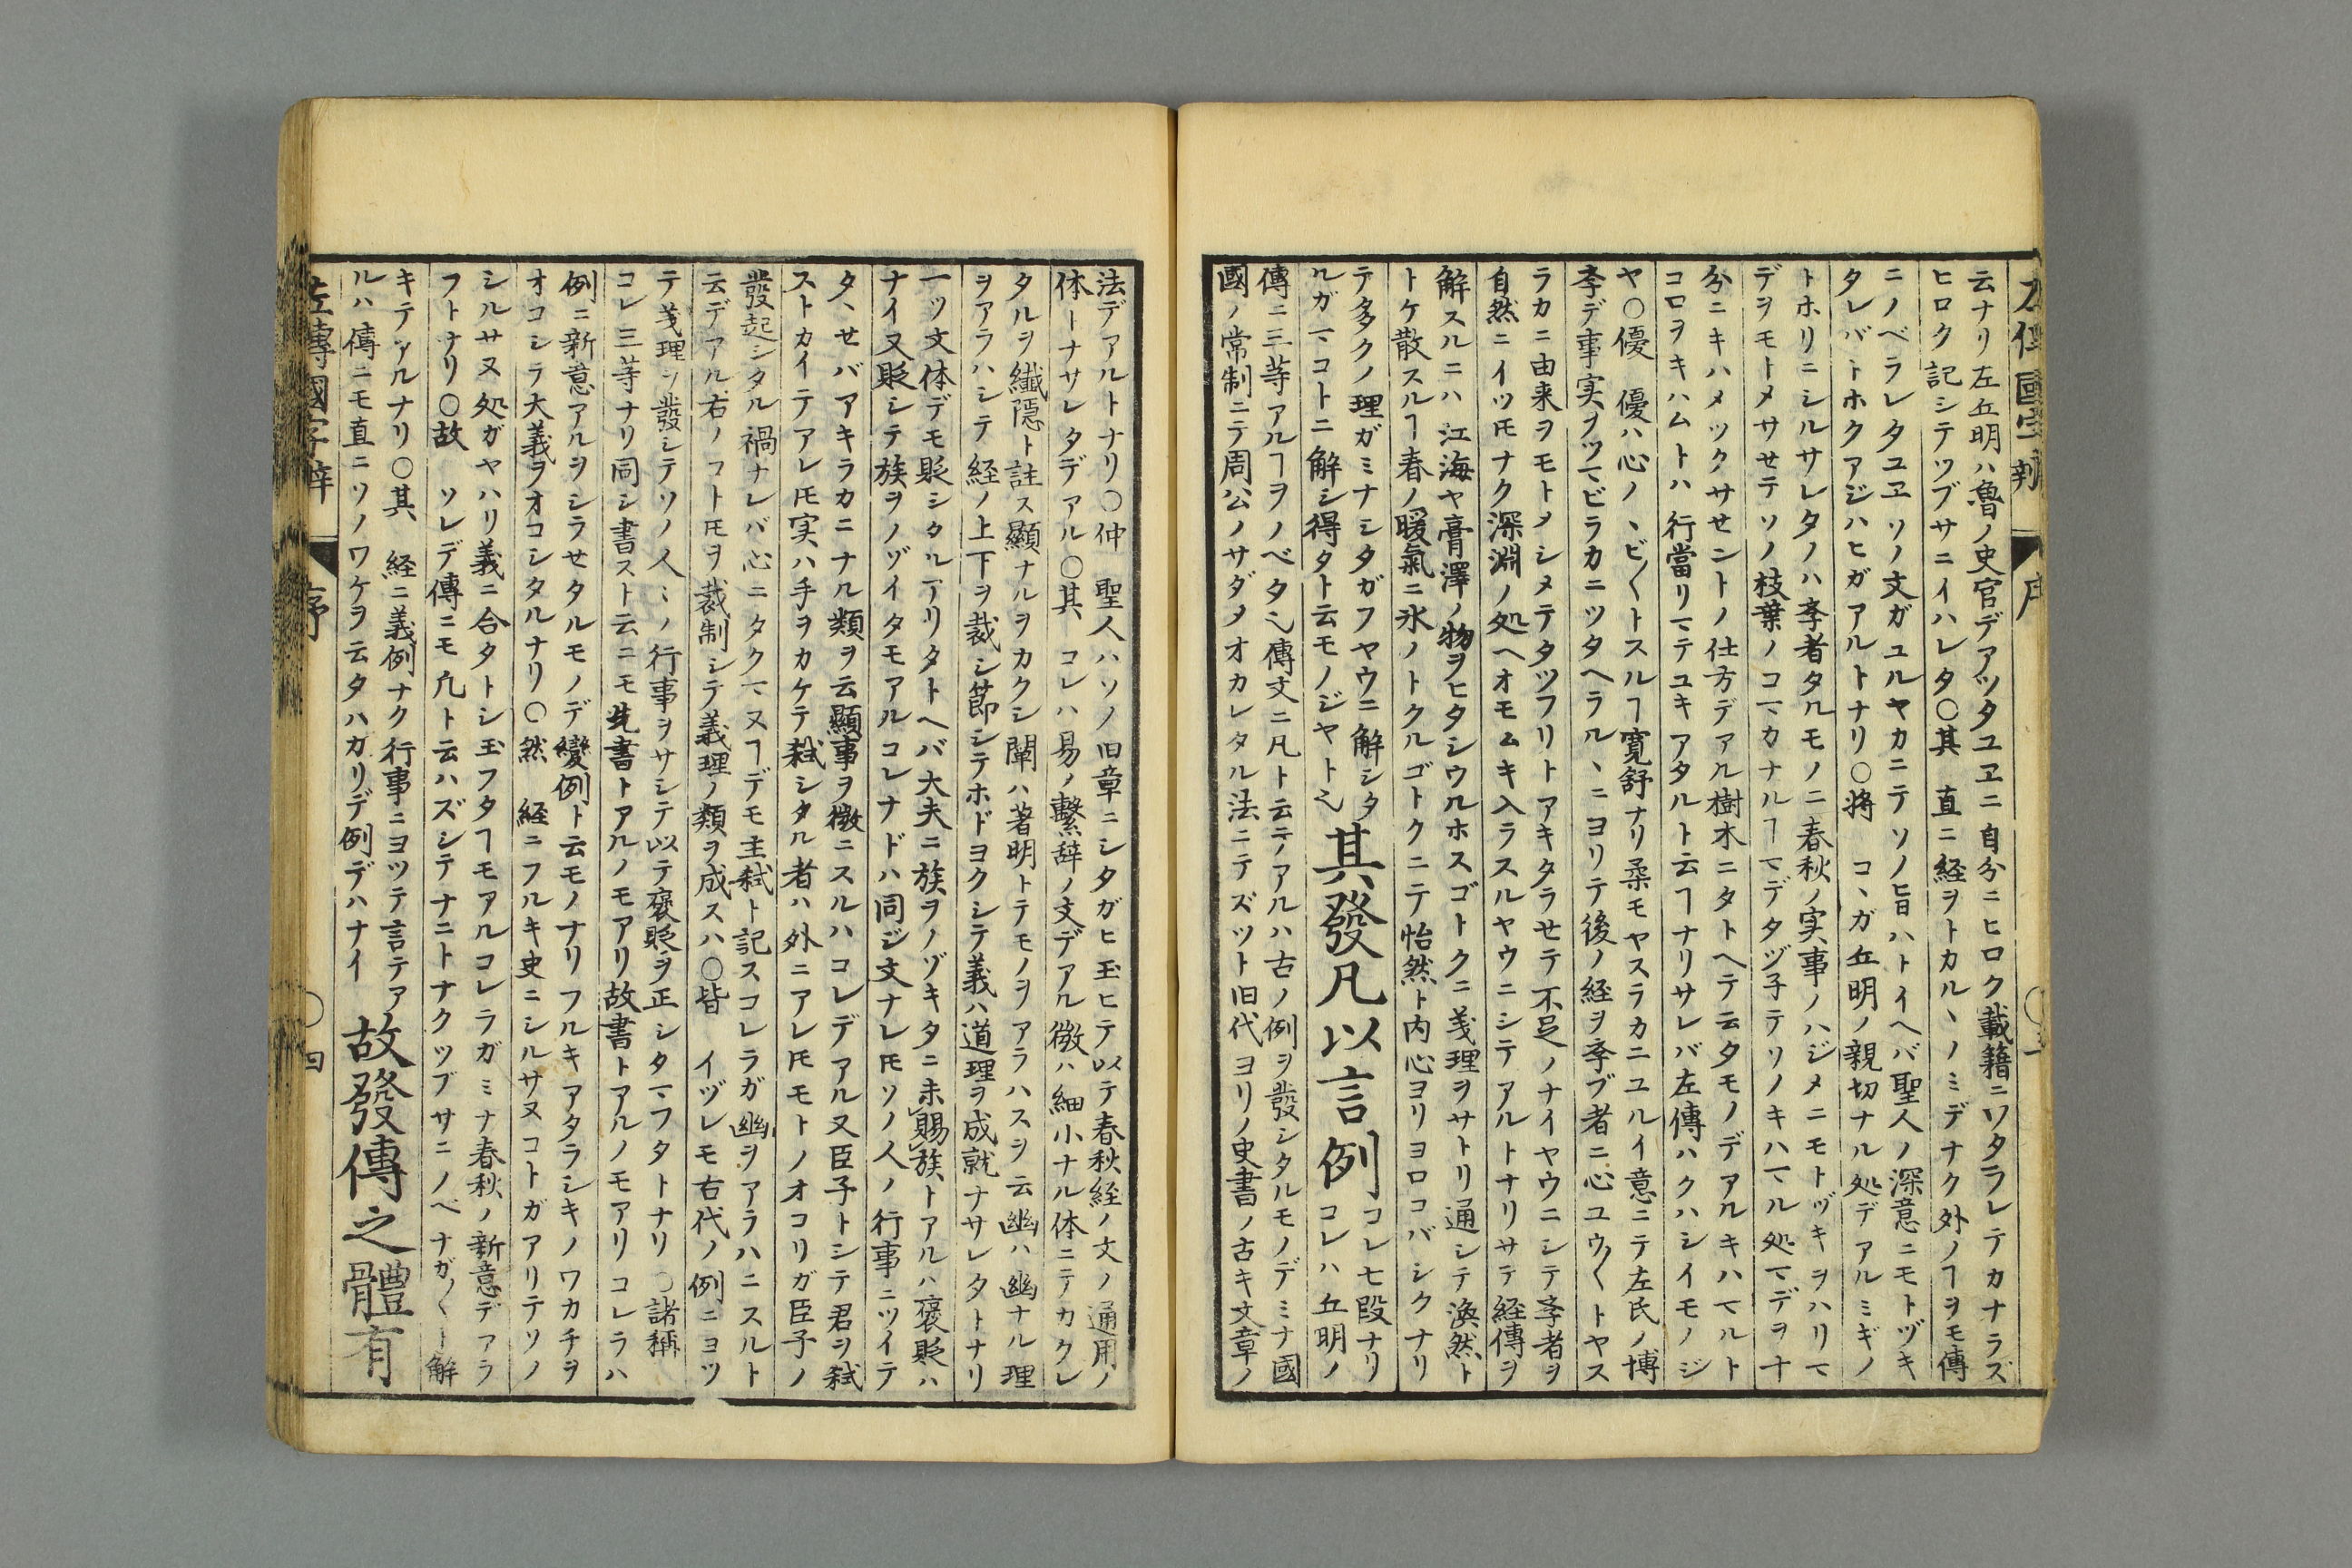 左傳國字辯 序
云ナリ左丘明ハ魯ノ史官デアツタユヱニ自分ニヒロク載籍ニワタラレテカナラズ
ヒロク記シテツブサニイハレタ〇其 直ニ経ヲトカルヽノミデナク外ノヿヲモ傳
ニノベラレタユヱソノ文ガユルヤカニテソノ旨ハトイヘバ聖人ノ深意ニモトヅキ
タレバトホクアジハヒガアルトナリ〇将 コヽガ丘明ノ親切ナル処デアルミギノ
トホリニシルサレタノハ斈者タルモノニ春秋ノ実事ノハジメニモトヅキヲハリマ
デヲモトメサセテソノ枝葉ノコマカナルヿマデタヅ子テソノキハマル処マデヲナ
分ニキハメツクサセントノ仕方デアル樹木ニタトヘテ云タモノデアルキハマルト
コロヲキハムトハ行當リマテユキアタルト云ヿナリサレバ左傳ハクハシイモノジ
ヤ〇優 優ハ心ノヽビ〱トスルヿ寛舒ナリ柔モヤスラカニユルイ意ニテ左氏ノ博
斈デ事実ヲツマビラカニツタヘラルヽニヨリテ後ノ経ヲ斈ブ者ニ心ユウ〱トヤス
ラカニ由来ヲモトメシメテタツフリトアキタラセテ不足ノナイヤウニシテ斈者ヲ
自然ニイツ𪜈ナク深淵ノ処ヘオモムキ入ラスルヤウニシテアルトナリサテ経傳ヲ
解スルニハ江海ヤ膏澤ノ物ヲヒタシウルホスゴトクニ義理ヲサトリ通シテ渙然ト
トケ散スルヿ春ノ暖氣ニ氷ノトクルゴトクニテ怡然ト内心ヨリヨロコバシクナリ
テ多クノ理ガミナシタガフヤウニ解シタ
ルガマコトニ解シ得タト云モノジヤト之
其發凡以言例
コレ七段ナリ
コレハ丘明ノ
傳ニ三等アルヿヲノベタ之傳文ニ凡ト云テアルハ古ノ例ヲ發シタルモノデミナ國
國ノ常制ニテ周公ノサダメオカレタル法ニテズツト旧代ヨリノ史書ノ古キ文章ノ
法デアルトナリ〇仲 聖人ハソノ旧章ニシタガヒ玉ヒテ以テ春秋経ノ文ノ通用ノ
体トナサレタデアル〇其 コレハ易ノ繫辞ノ文デアル微ハ細小ナル体ニテカクレ
タルヲ纎隠ト註ス顯ナルヲカクシ闡ハ著明トテモノヲアラハスヲ云幽ハ幽ナル理
ヲアラハシテ経ノ上下ヲ裁シ節シテホドヨクシテ義ハ道理ヲ成就ナサレタトナリ
一ツ文体デモ貶シタルアリタトヘバ大夫ニ族ヲノゾキタニ未賜族トアルハ褒貶ハ
ナイ又貶シテ族ヲノゾイタモアルコレナドハ同ジ文ナレ𪜈ソノ人ノ行事ニツイテ
タヽセバアキラカニナル類ヲ云顯事ヲ微ニスルハコレデアル又臣子トシテ君ヲ弑
ストカイテアレ𪜈実ハ手ヲカケテ弑シタル者ハ外ニアレ𪜈モトノオコリガ臣子ノ
發起シタル禍ナレバ心ニタクマヌヿデモ主弑ト記スコレラガ幽ヲアラハニスルト
云デアル右ノコト𪜈ヲ裁制シテ義理ノ類ヲ成スハ〇皆 イヅレモ右代ノ例ニヨツ
テ義理ヲ發シテソノ人〻ノ行事ヲサシテ以テ褒貶ヲ正シタマフタトナリ〇諸稱
コレ三等ナリ同シ書スト云ニモ先書トアルノモアリ故書トアルノモアリコレラハ
例ニ新意アルヲシラセタルモノデ變例ト云モノナリフルキアタラシキノワカチヲ
オコシラ大義ヲオコシタルナリ〇然 経ニフルキ史ニシルサヌコトガアリテソノ
シルサヌ処ガヤハリ義ニ合タトシ玉フタヿモアルコレラガミナ春秋ノ新意デアラ
フトナリ〇故 ソレデ傳ニモ凢ト云ハズシテナニトナクツブサニノベナガ〱ト解
キテアルナリ〇其 経ニ義例ナク行事ニヨツテ言テアノ
ルハ傳ニモ直ニソノワケヲ云タハカリデ例デハナイ
故發傳之體有
左傳國字辯 序 〇四